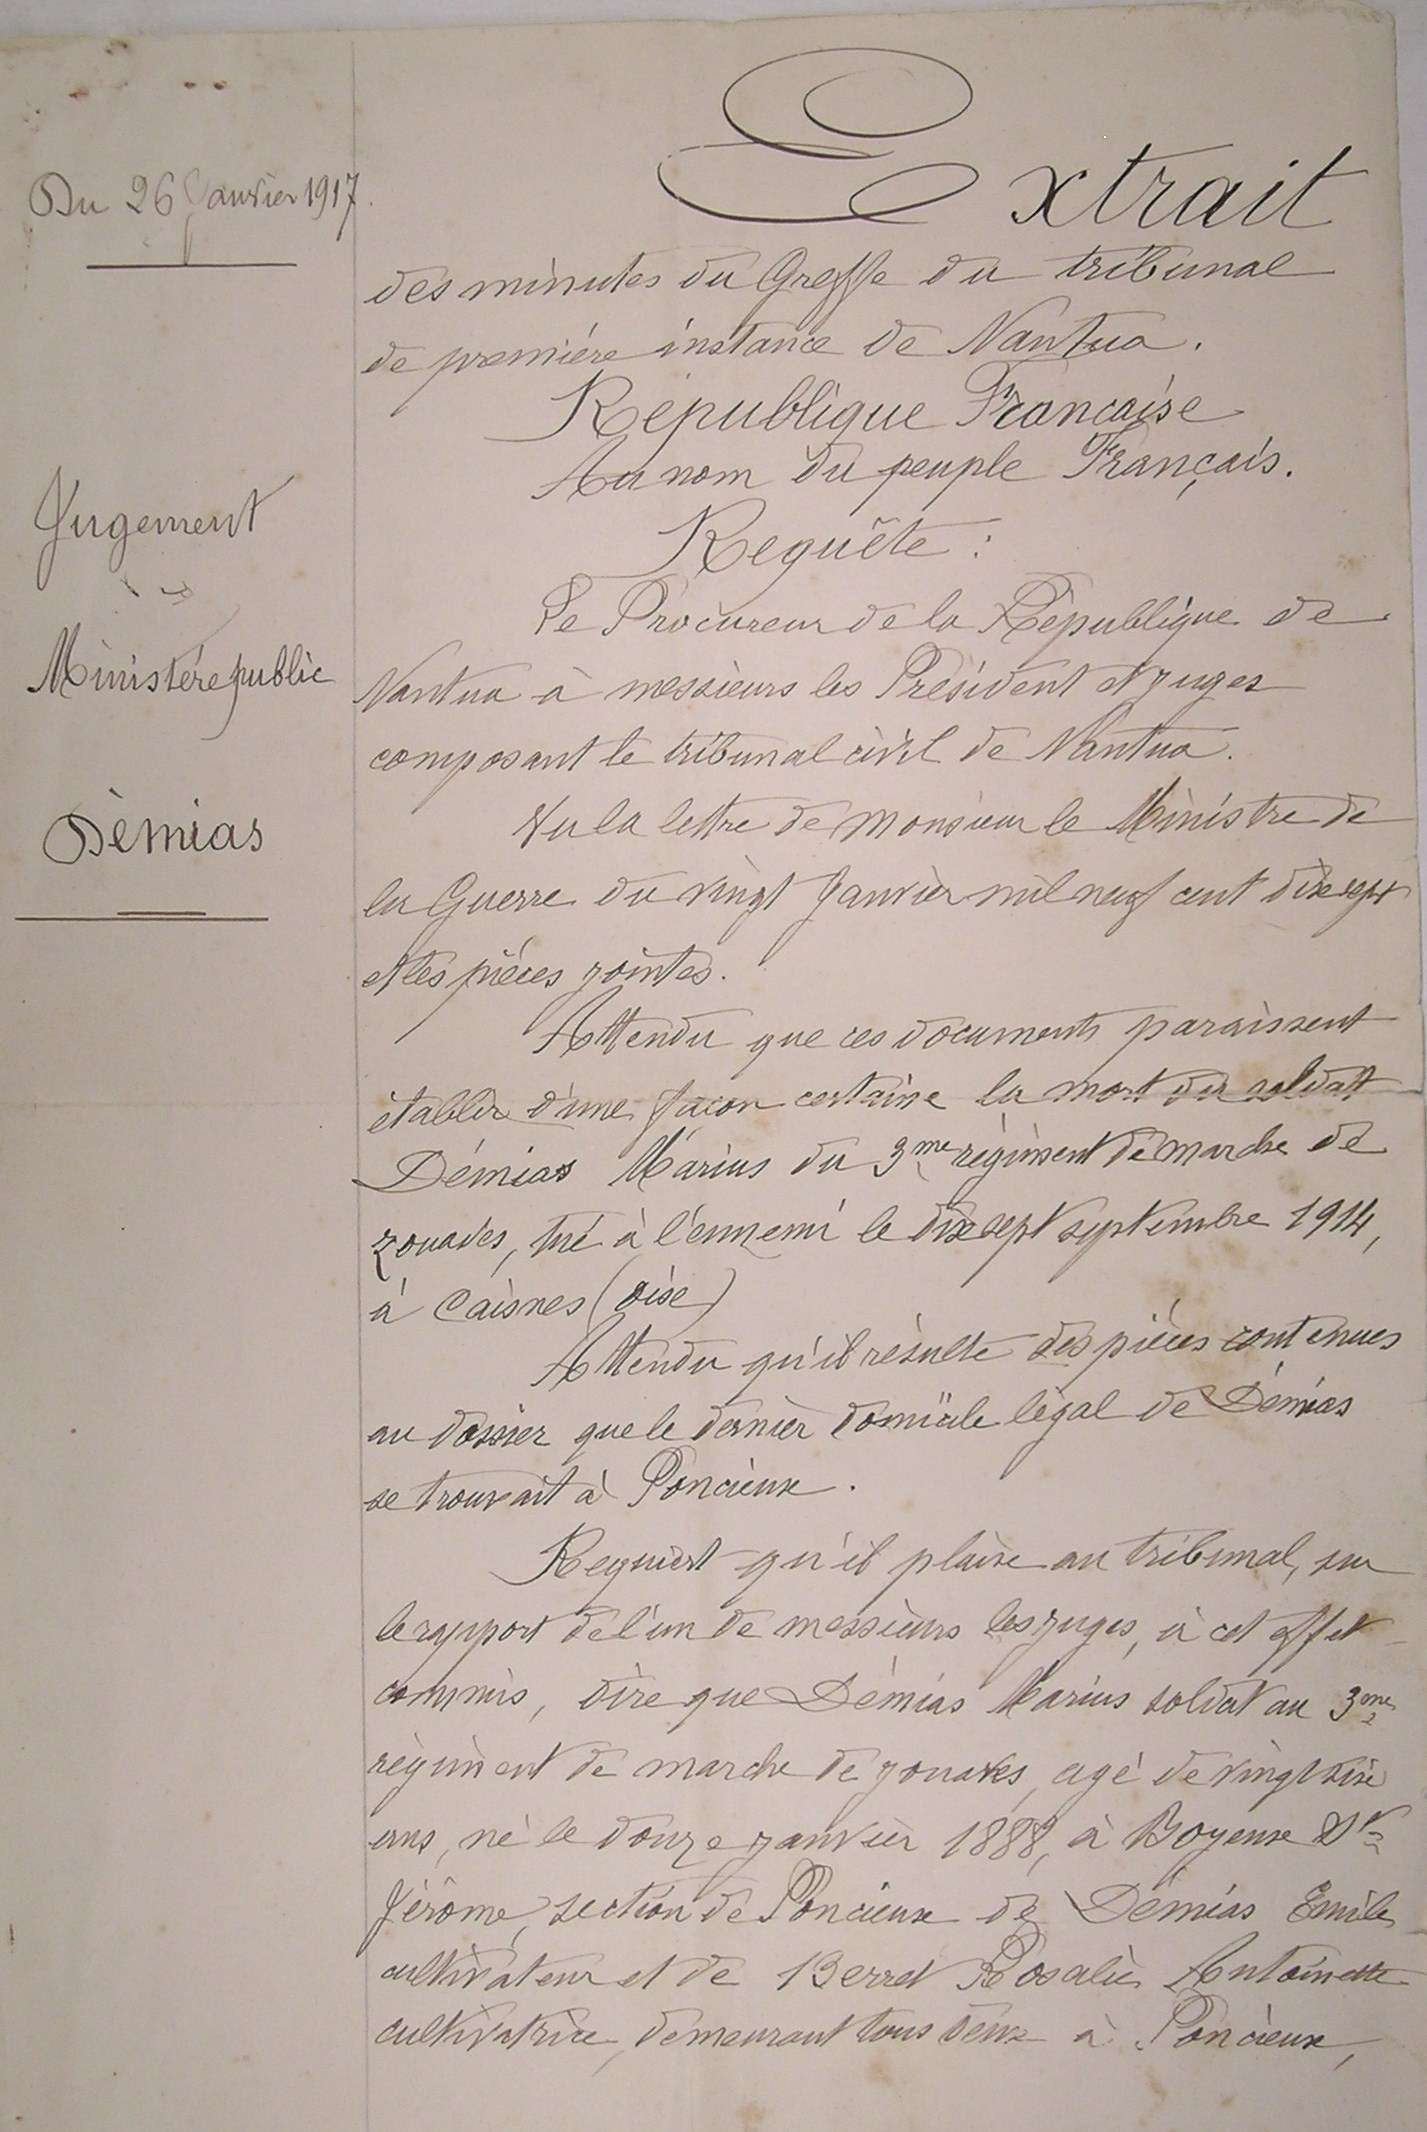 Du 26 Janvier 1917.
Jugement
Ministère public
Dèmias
Extrait
des minutes du Greffe du tribunal
de première instance de Nantua.
République Française
Au nom du peuple Français.
Requête :
Le Procureur de la République de
Nantua à messieurs les Président et juges
composant le tribunal civil de Nantua.
Vu la lettre de Monsieur le Ministre de
la Guerre du vingt Janvier mil neuf cent dix sept
et les pièces jointes.
Attendu que ces documents paraissent
établir d'une façon certaine la mort du soldat
Démias Marius du 3me régiment de marche de
zouaves, tué à l'ennemi le dix sept septembre 1914,
à Caisnes (Oise)
Attendu qu'il résulte des pièces contenues
au dossier que le dernier domicile légal de Démias
se trouvait à Poncieux.
Requiert qu'il plaise au tribunal, sur
le rapport de l'un de messieurs les juges, à cet effet
commis, dire que Démias Marius soldat au 3me
régiment de marche de zouaves, agé de vingt six
ans, né le douze janvier 1888, à Boyeux St
Jérôme, section de Poncieux de Démias Emile
cultivateur et de Berret Rosalie Antoinette
cultivatrice, demeurant tous deux à Poncieux,